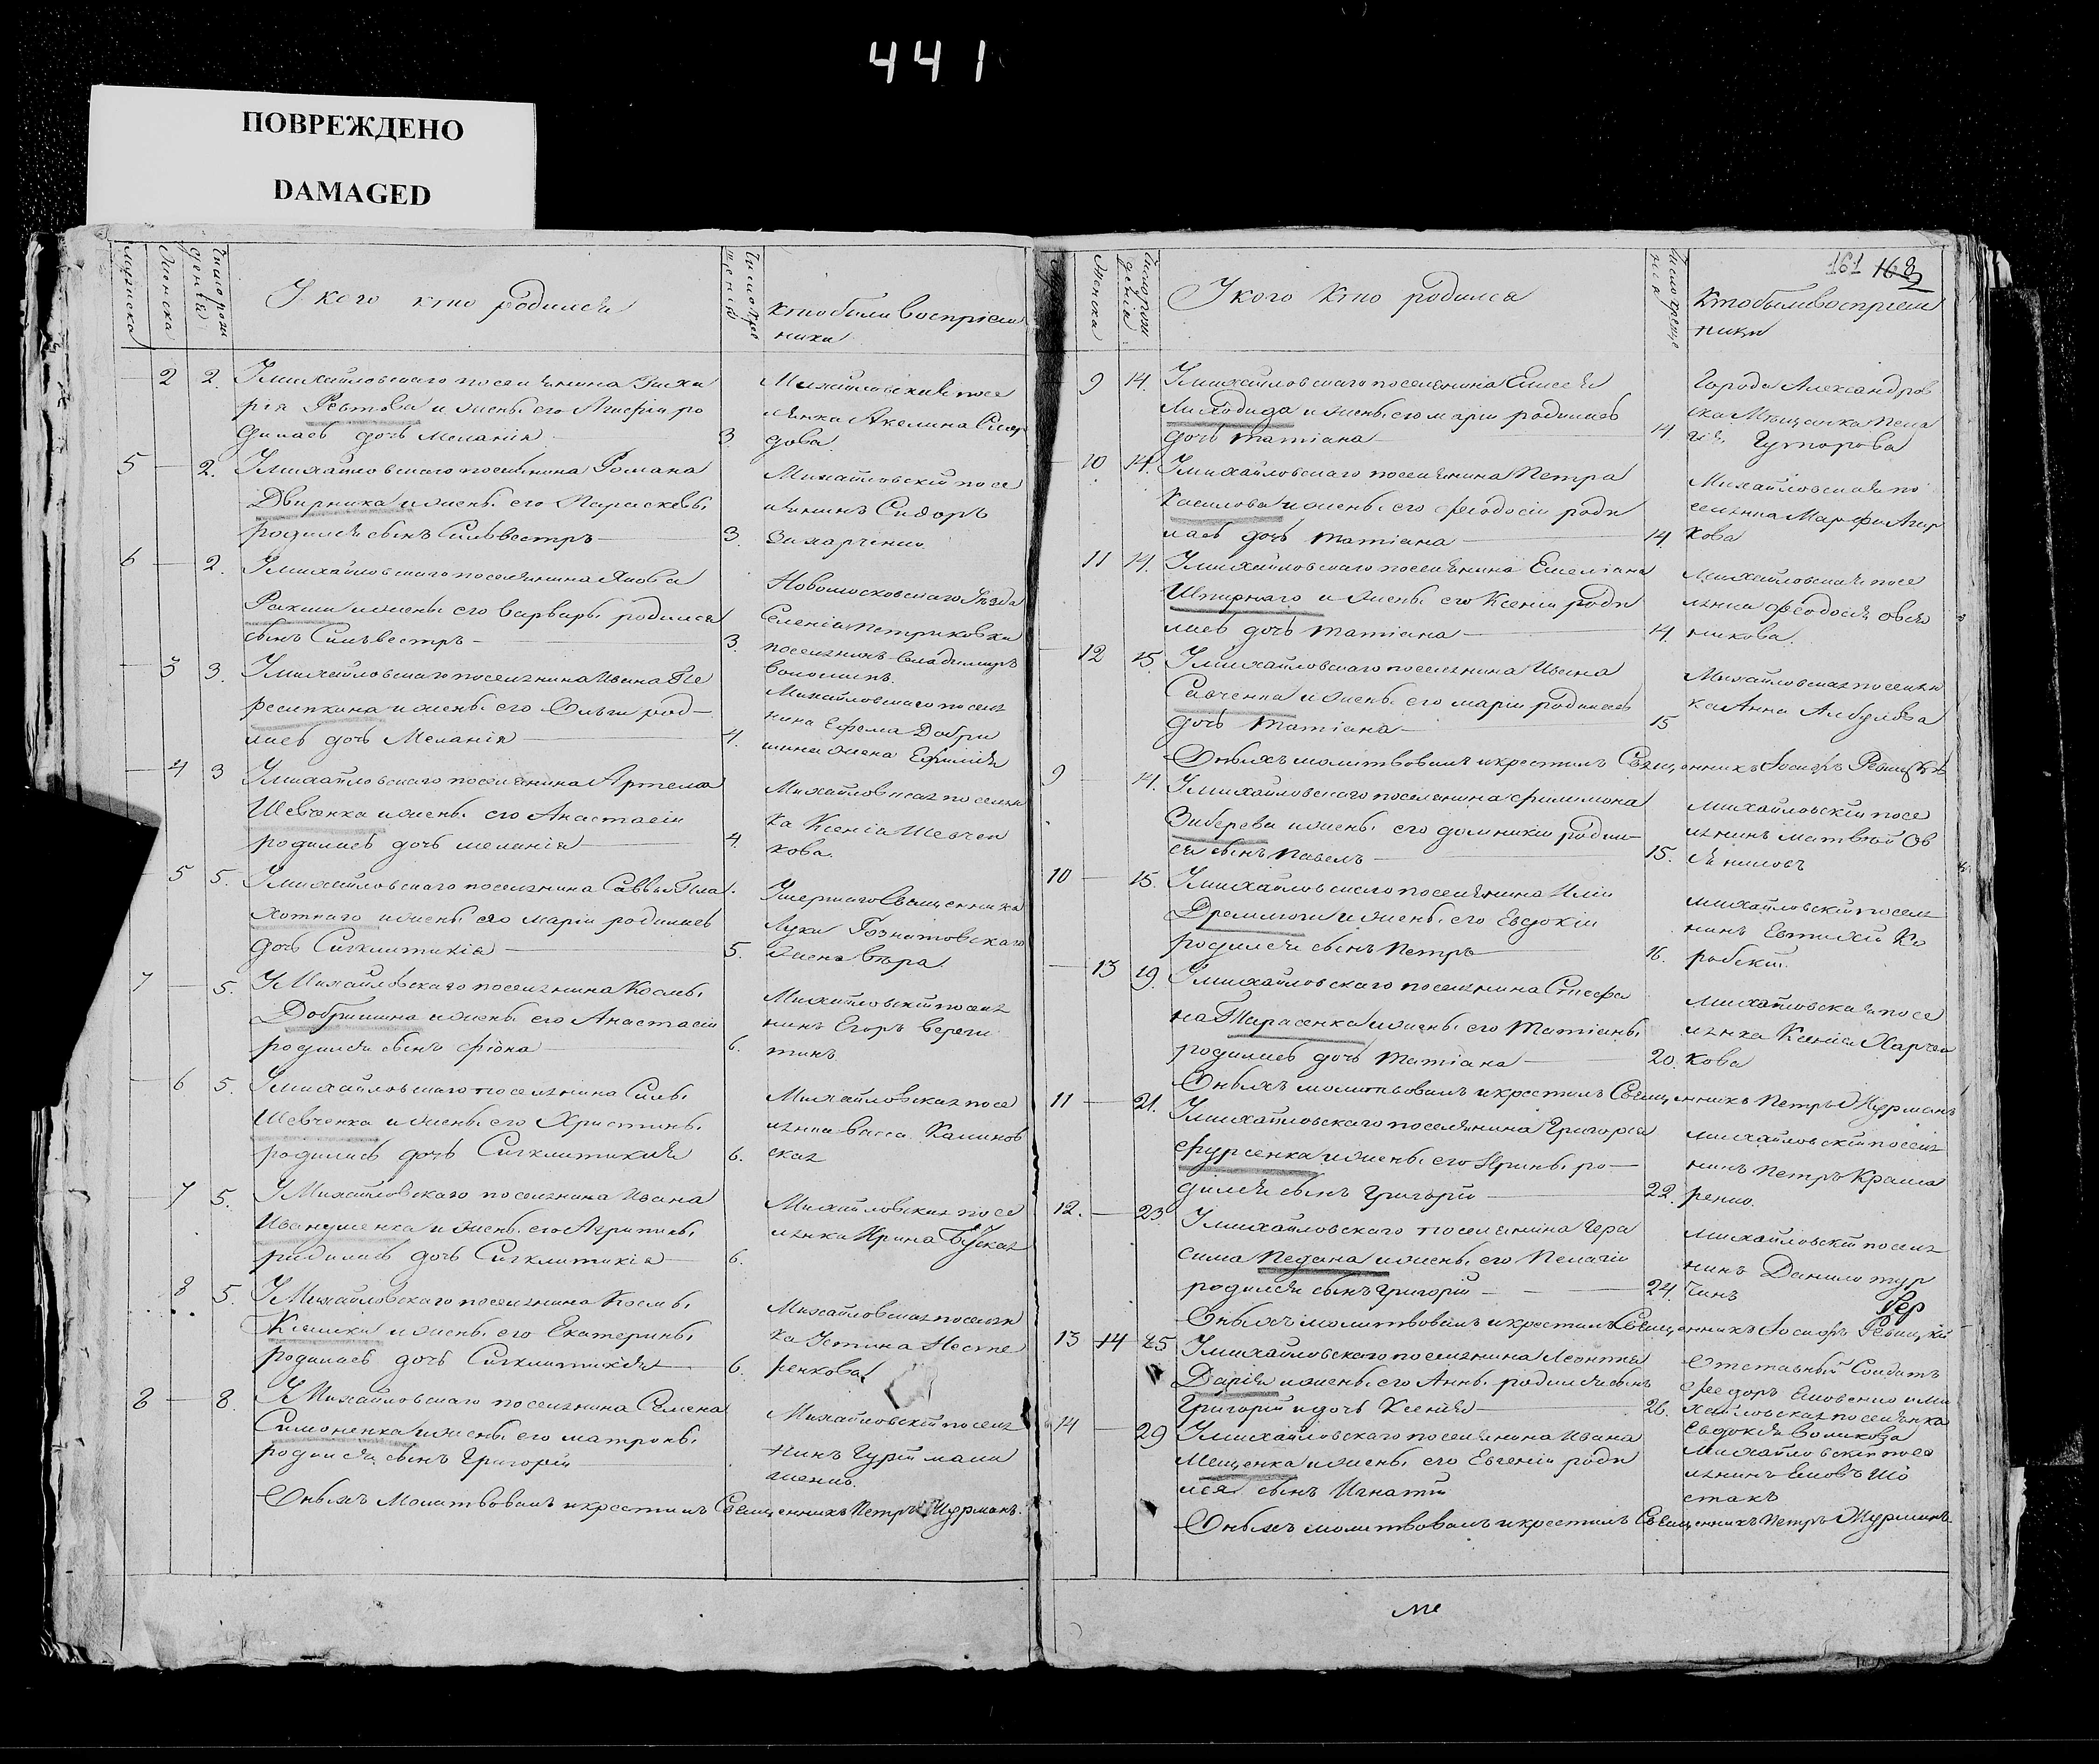 441
ПОВРЕЖДЕНО
DAMAGED
мужеска
Женска
Число рож
денія
У кого кто родился
Число кре
щенія
кто были воспріем
ники
2 2. У михайловскаго поселянина Заха
рія Ревтова и жены его Агафіи ро
дилась дочь Меланія 3
Михайловская посе
лянка Акелина Сидо
дова.
5 — 2. У михайловскаго поселянина Романа
Дворника и жены его Параскевы
родился сынъ Сильвестръ — 3.
Михайловскій посе
лянинъ Сидоръ
Захарченко.
6 — 2. У михайловскаго поселянина Якова
Ракши и жены его Варвары родился
сынъ Сильвестръ — 3.
Новомосковскаго уѣзда
Селенія Петриковки
поселянинъ Владимиръ
— 3 3. У михайловскаго поселянина Ивана Пе
репилкина и жены его Ольги род—
лась дочь Меланія — 4.
Михайловскаго поселя
нина Ефрема Добри
шина жена Ефимія
— 4 3 У михайловскаго поселянина Артема
Шевченка и жены его Анастасіи
родилась дочь меланія — 4.
Михайловская поселян
ка Ксенія Шевчен
кова.
5 5. У михайловскаго поселянина Саввы Пла
хотнаго и жены его маріи родилась
дочь Сигклитикія — 5.
Умершаго Священника
Луки Гознатовскаго
жена Вѣра.
7 — 5. У Михайловскаго поселянина Косьмы
Добришина и жены его Анастасіи
родился сынъ Фіона — 6.
Михайловскій поселя
нинъ Егоръ Верети
тинъ.
— 6 5. У михайловскаго поселянина Силы
Шевченка и жены его Христины
родилась дочь Сигклитикія 6.
Михайловская посе
лянка Васса Калинов
ская
— 7 5. У Михайловскаго поселянина Ивана
Иванушенка и жены его Агрипины
родилась дочь Сигклитикія — 6.
Михайловская посе
лянка Ирина Буская
8 5. У Михайловскаго поселянина Космы
Климки и жены его Екатерины
родилась дочь Сигклитикія — 6.
Михайловская поселян
ка Устина Несте
ренкова
8 — 8. У Михайловскаго поселянина Семена
Симоненка и жены его матроны
родился сынъ Григорій —
Михайловскій поселя
нинъ Гурій мали
шенко.
Оныхъ Молитвовалъ и крестилъ Священникъ Петръ Журманъ.
Женска
Число рож
денія
У кого кто родился
Число креще
нія
161 168
Кто были воспріем
ники
9 14. У михайловскаго поселянина Елисея
Лиходида и жены его маріи родилась
дочь татіана — 14.
Города Александров
ска Мѣщанка Пела
гія Гуторова
10 14. У михайловскаго поселянина Петра
Касилова и жены его Феодосіи роди
лась дочь татіана — 14.
Михайловская по
селянка Марфа Агар
кова
11 14. У михайловскаго поселянина Емеліана
Шпирнаго и жены его Ксеніи роди
лась дочь татіана — 14
Михайловская посе
лянка Феодосія Овся
никова.
12 15. У михайловскаго поселянина Ивана
Савченка и жены его маріи родилась
дочь татіана — 15
Михайловская поселян
ка Анна Албулова
Оныхъ молитвовалъ и крестилъ Священникъ Іосифъ Ревицкій
9 14. У михайловскаго поселянина Филимона
Зиберева и жены его домникіи родил—
ся сынъ Павелъ — 15.
михайловскій посе
лянинъ матвѣй Ов
сяниковъ
10 — 15. У михайловскаго поселянина Иліи
Дремлюги и жены его Евдокіи
родился сынъ Петръ — 16.
михайловскій поселя
нинъ Евтихій Ко
робскій.
— 13 19. У михайловскаго поселянина Стефа
на Тарасенка и жены его татіаны
родилась дочь татіана — 20.
михайловская посе
лянка Ксенія Харчен
кова
Оныхъ молитвовалъ и крестилъ Священникъ Петръ Журманъ
11 — 21. У михайловскаго поселянина Григорія
Фурсенка и жены его Ирины ро—
дился сынъ Григорій — 22.
михайловскій поселя
нинъ Петръ Крама
ренко.
12. — 23. У михайловскаго поселянина Гера
сима Педана и жены его Пелагіи
родился сынъ Григорій — 24.
михайловскій поселя
нинъ Данило тур
чинъ
Оныхъ молитвовалъ и крестилъ Священникъ Іосифъ Ревицкій
13 14 25 У михайловскаго поселянина Леонтія
Дарія и жены его Анны родился сынъ
Григорій и дочь Ксенія — 26.
Отставный Солдатъ
Федоръ Яковенко и ми
хайловская поселянка
Евдокія Воликова
14 — 29 У михайловскаго поселянина Ивана
Мещенка и жены его Евгеніи роди
лся сынъ Игнатій
михайловскій посе
лянинъ Яковъ Шо
стакъ
Оныхъ молитвовалъ и крестилъ Священникъ Петръ Журманъ